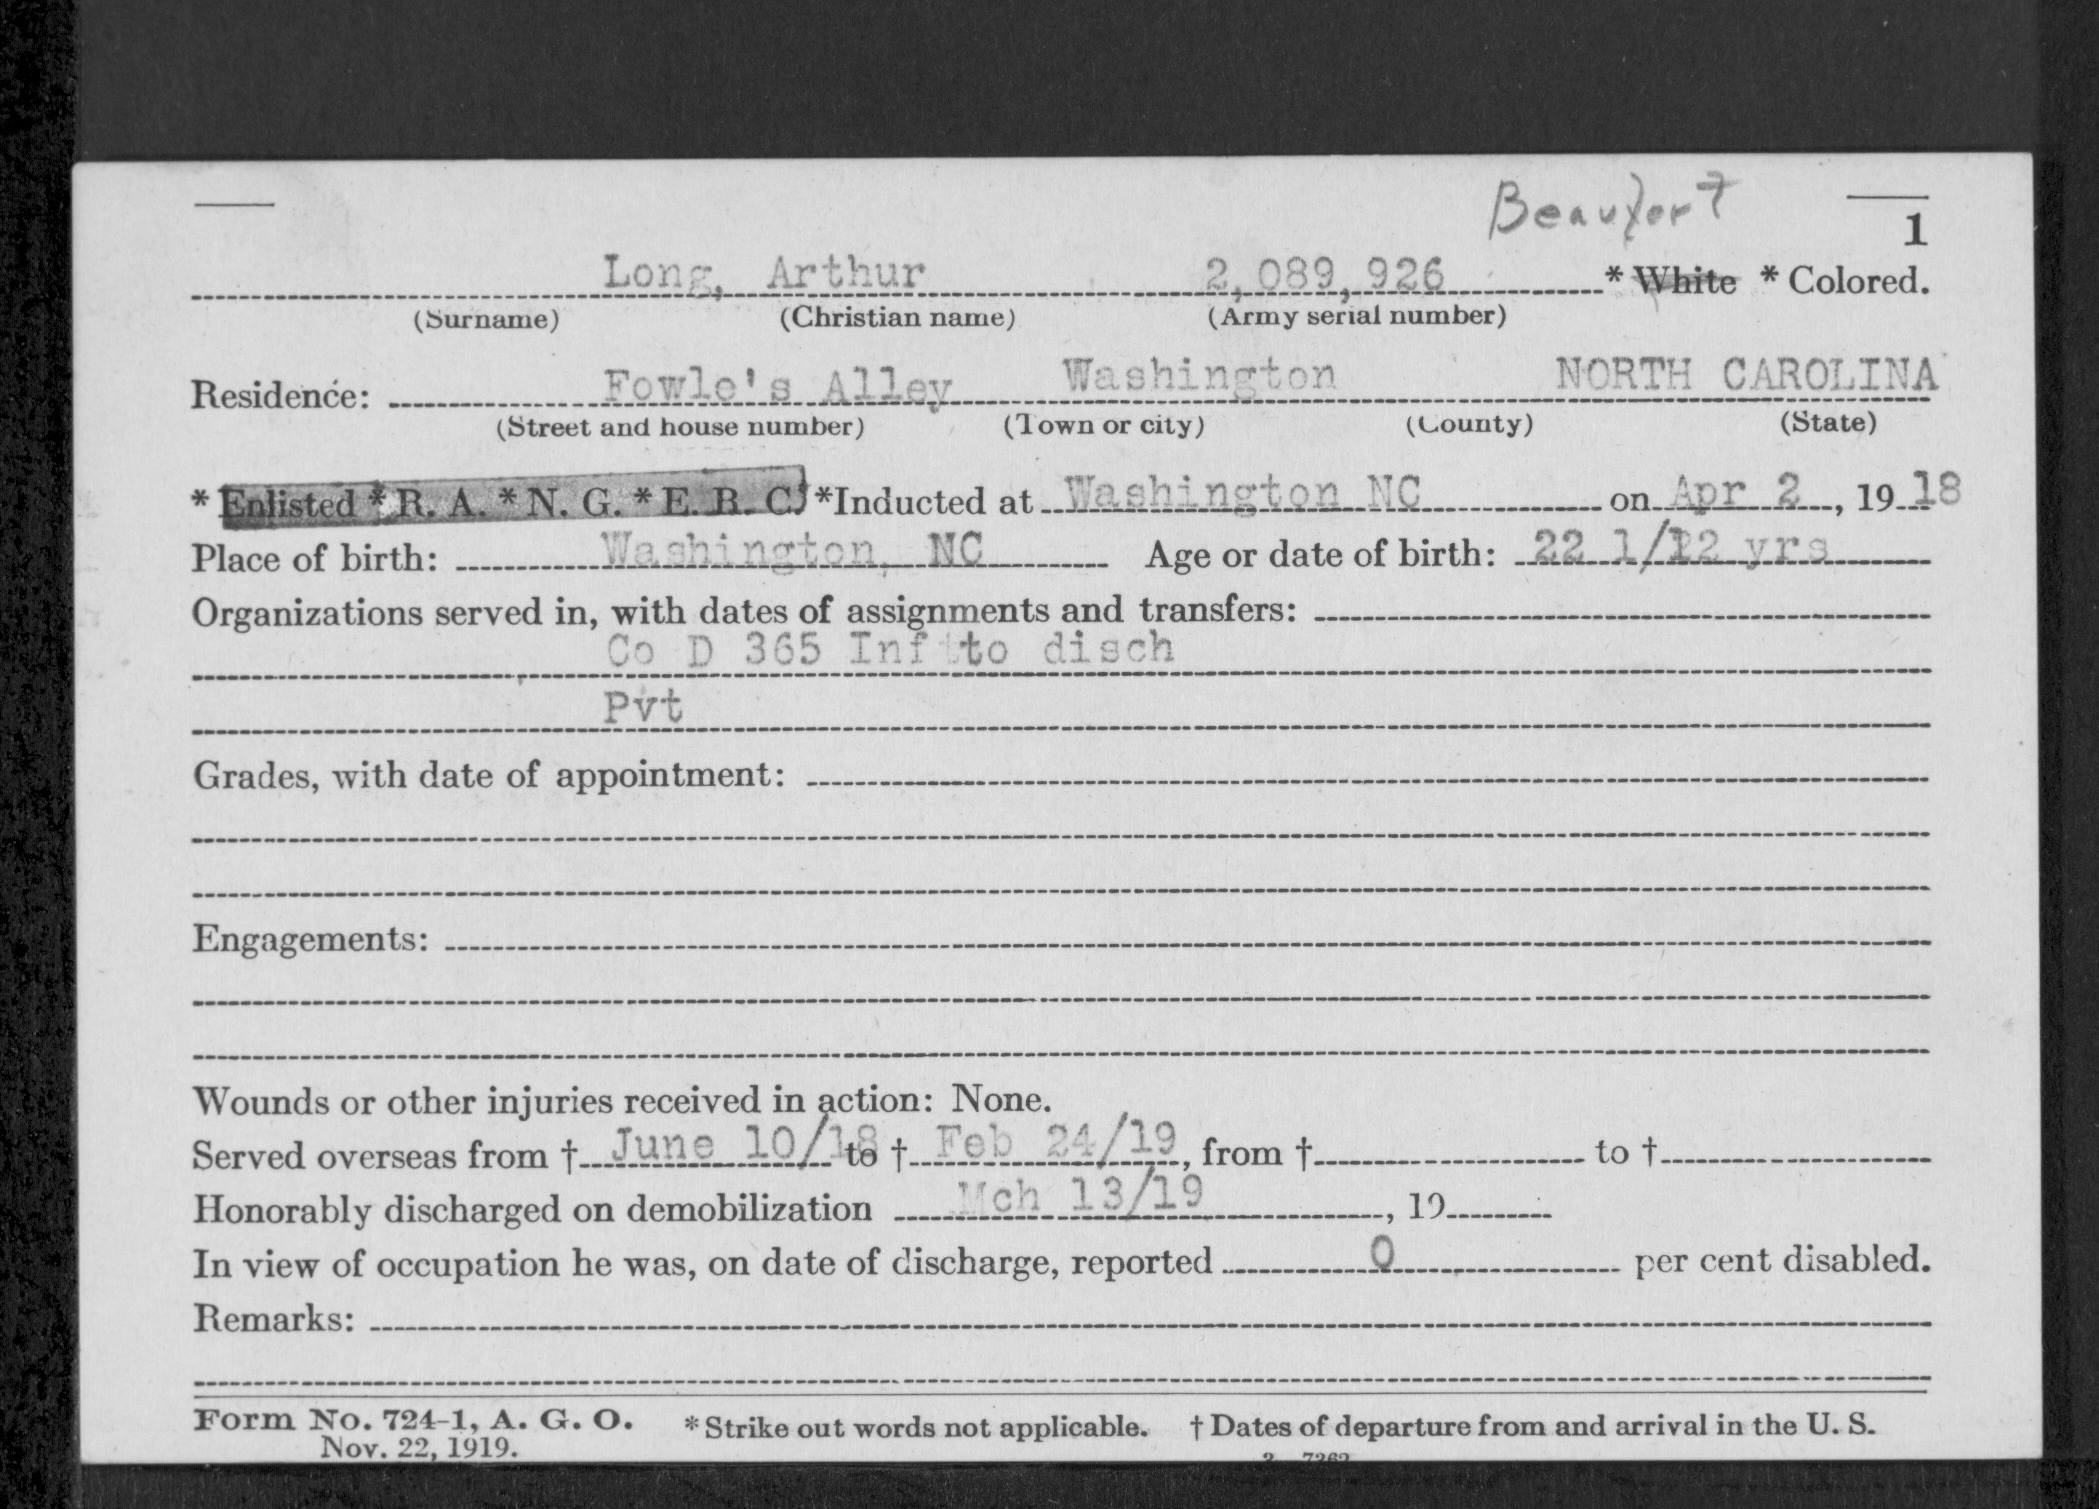 Beaufort
1
Long, Arthur 2,089,926 * White * Colored.
(Surname) (Christian name) (Army serial number)
Residence: Fowle's Alley Washington NORTH CAROLINA
(Street and house number) (Town or city) (County) (State)
* Enlisted * R. A. * N. G. * E. R. C. * Inducted at Washington NC on Apr 2, 19 18
Place of birth: Washington, NC Age or date of birth: 22 1/12 yrs
Organizations served in, with dates of assignments and transfers:
Co D 365 Inf to disch
Pvt
Grades, with date of appointment:
Engagements:
Wounds or other injuries received in action: None.
Served overseas from † June 10/18 to † Feb 24/19, from † to †
Honorably discharged on demobilization Mch 13/19, 19
In view of occupation he was, on date of discharge, reported 0 per cent disabled.
Remarks:
Form No. 724-1, A. G. O. * Strike out words not applicable. † Dates of departure from and arrival in the U. S.
Nov. 22, 1919.